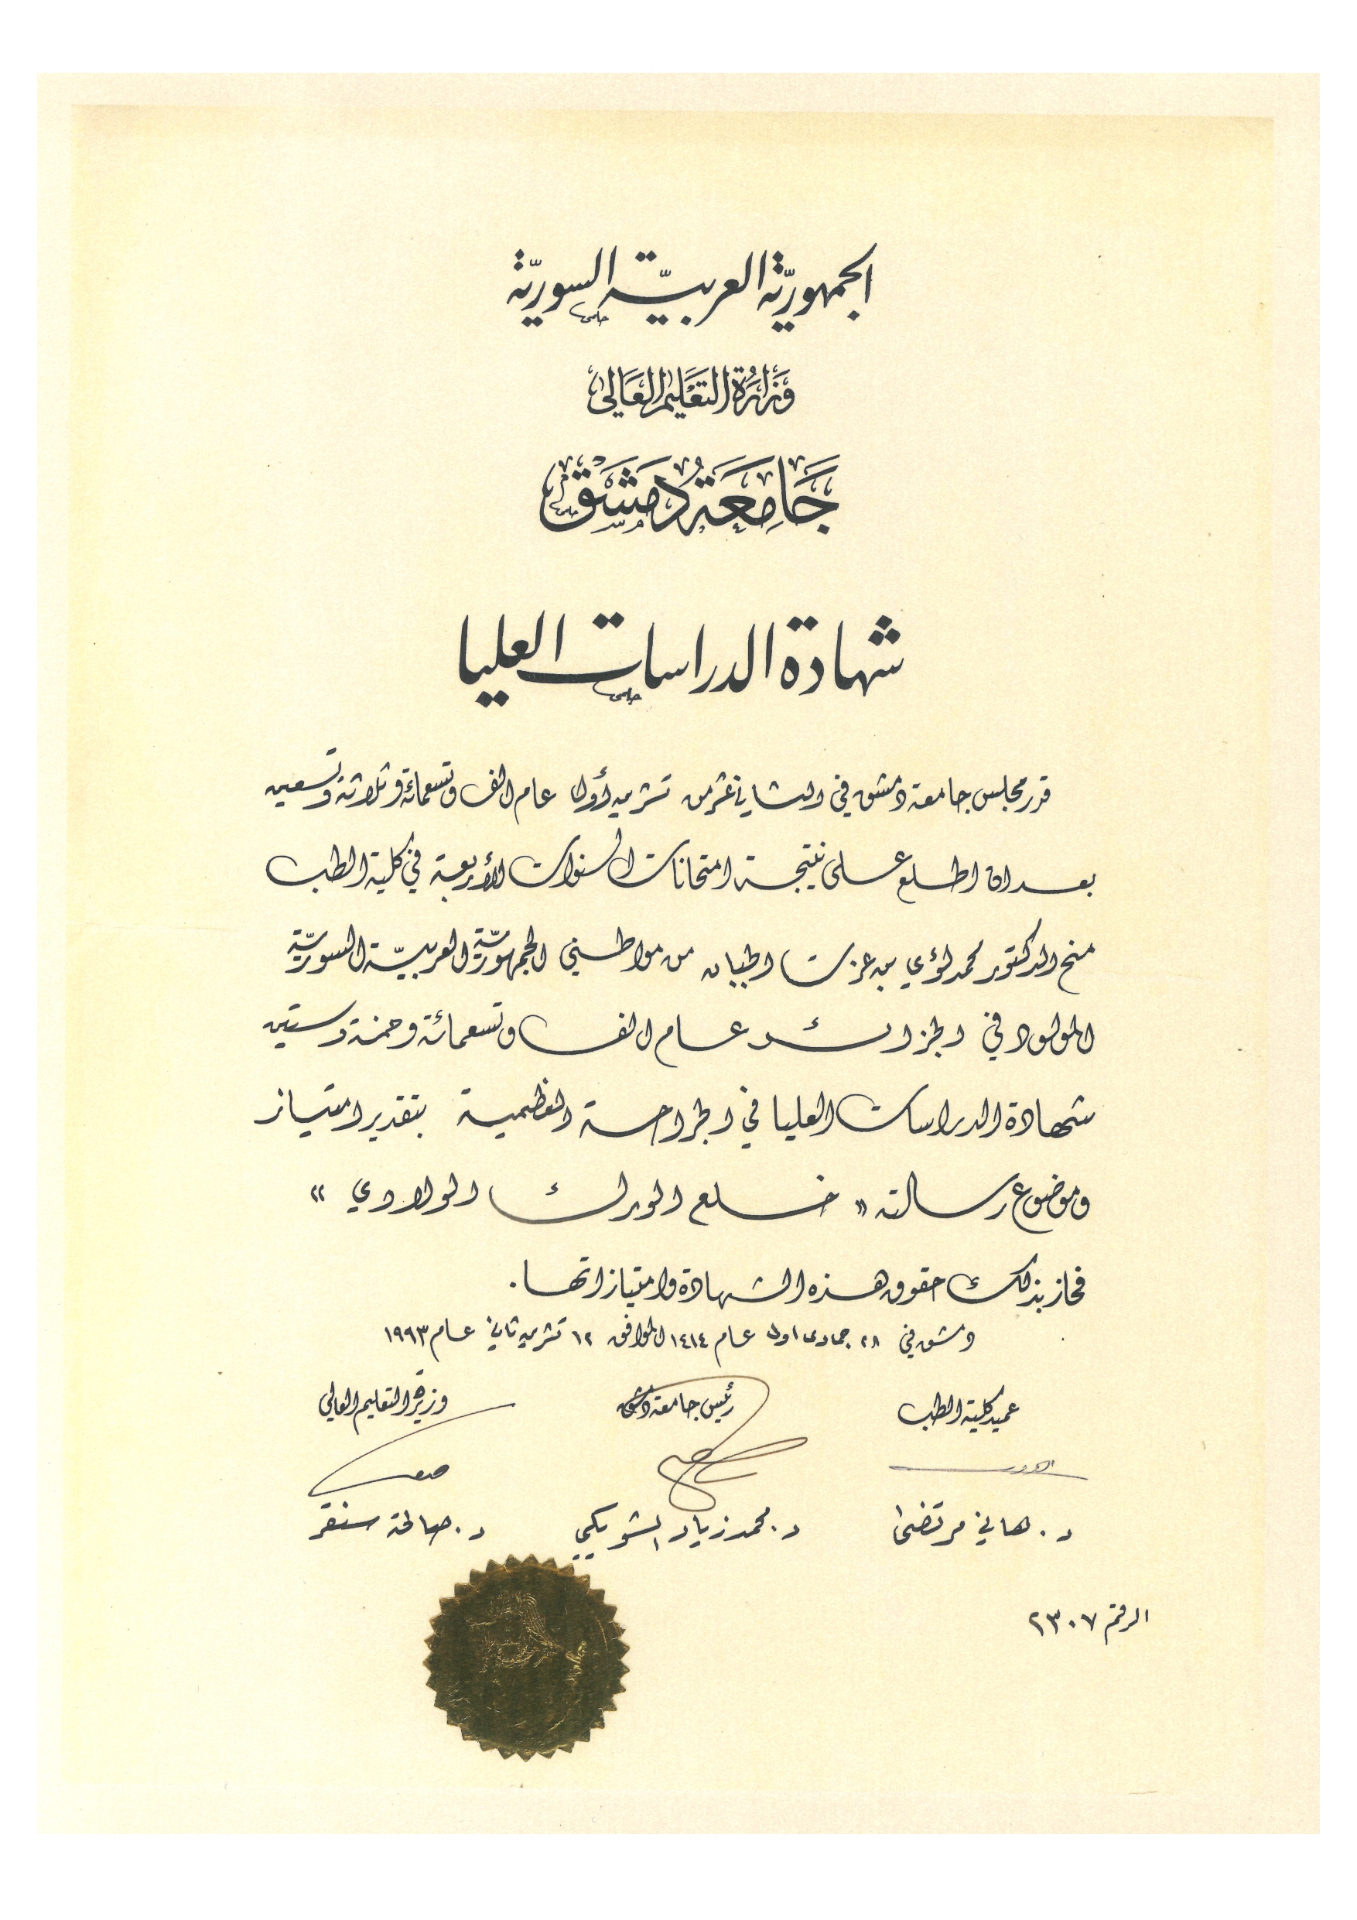 الجمهوريّة العربيّة السوريّة
وَزَارَة التعَليم العَالي
جَامِعَة دِمَشق
شهادة الدراسات العليا
قرر مجلس جامعة دمشق في الثاني عشر من تشرين أول عام الف وتسعمائة وثلاثة وتسعين
بعد ان اطلع على نتيجة امتحانات السنوات الأربعة في كلية الطب
منح الدكتور محمد لؤي بن عزت الطيبان من مواطني الجمهوريّة العربيّة السوريّة
المولود في الجزائر عام الف وتسعمائة وخمسة وستين
شهادة الدراسات العليا في الجراحة العظمية بتقدير امتياز
وموضوع رسالته « خلع الورك الولادي »
فحاز بذلك حقوق هذه الشهادة وامتيازاتها .
دمشق في ٢٨ جمادى اولى عام ١٤١٤ الموافق ١٢ تشرين ثاني عام ١٩٩٣
عميد كلية الطب رئيس جامعة دمشق وزيرة التعليم العالي
د . هاني مرتضى د . محمد زياد الشويكي د . صالحة سنقر
الرقم ٢٣٠٧